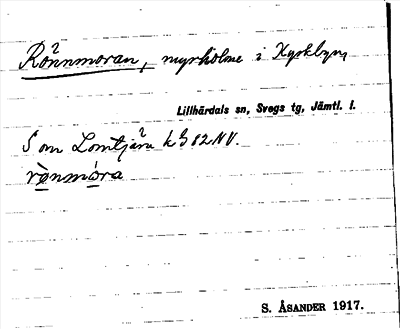 Rönnmoran, myrholme i Kyrkbyn
Lillhärdals sn, Svegs tg, Jämtl. l.
S om Lomtjärn k 382 NV.
rönmòra
S. ÅSANDER 1917.